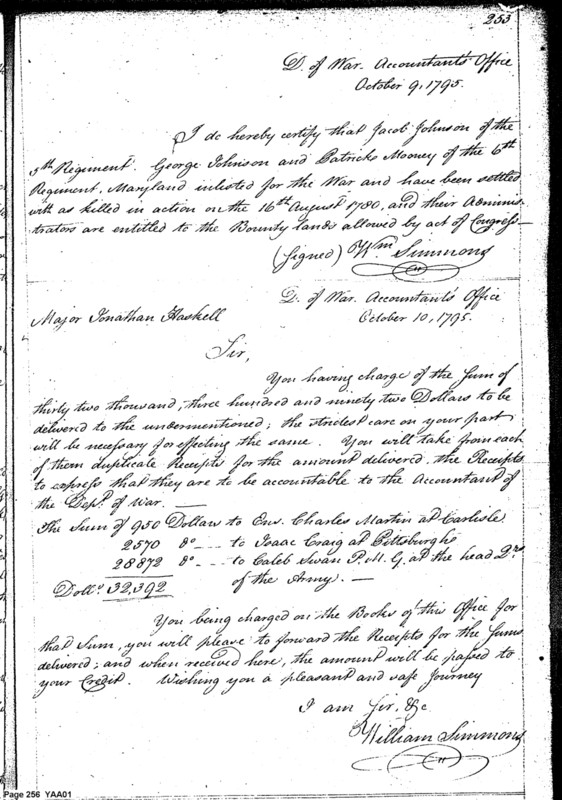 253
D. of War. Accountants' Office
October 9, 1795.
I do hereby certify that Jacob Johnson of the
5th Regiment. George Johnson and Patrick Mooney of the 6th
Regiment, Maryland inlisted for the War and have been settled
with as killed in action on the 16th August 1780, and their Adminis-
trators are entitled to the Bounty lands allowed by act of Congress—
(Signed) Wm Simmons
D. of War. Accountants' Office
October 10, 1795.
Major Jonathan Haskell
Sir,
You having charge of the Sum of
thirty two thousand, three hundred and ninety two Dollars to be
delivered to the undermentioned; the strictest care on your part
will be necessary for effecting the same. You will take from each
of them duplicate Receipts for the amount delivered. the Receipts
to express that they are to be accountable to the Accountant of
the Dept. of War. —
The Sum of 950 Dollars to Ens. Charles Martin at Carlisle.
2570 do --- to Isaac Craig at Pittsburgh
28872 do --- to Caleb Swan P.M.G. at the head Qrs.
Dolls. 32,392 of the Army. —
You being charged on the Books of this Office for
that Sum, you will please to forward the Receipts for the Sums
delivered; and when received here, the amount will be passed to
your Credit. Wishing you a pleasant and safe Journey
I am Sir, &c
William Simmons
Page 256 YAA01